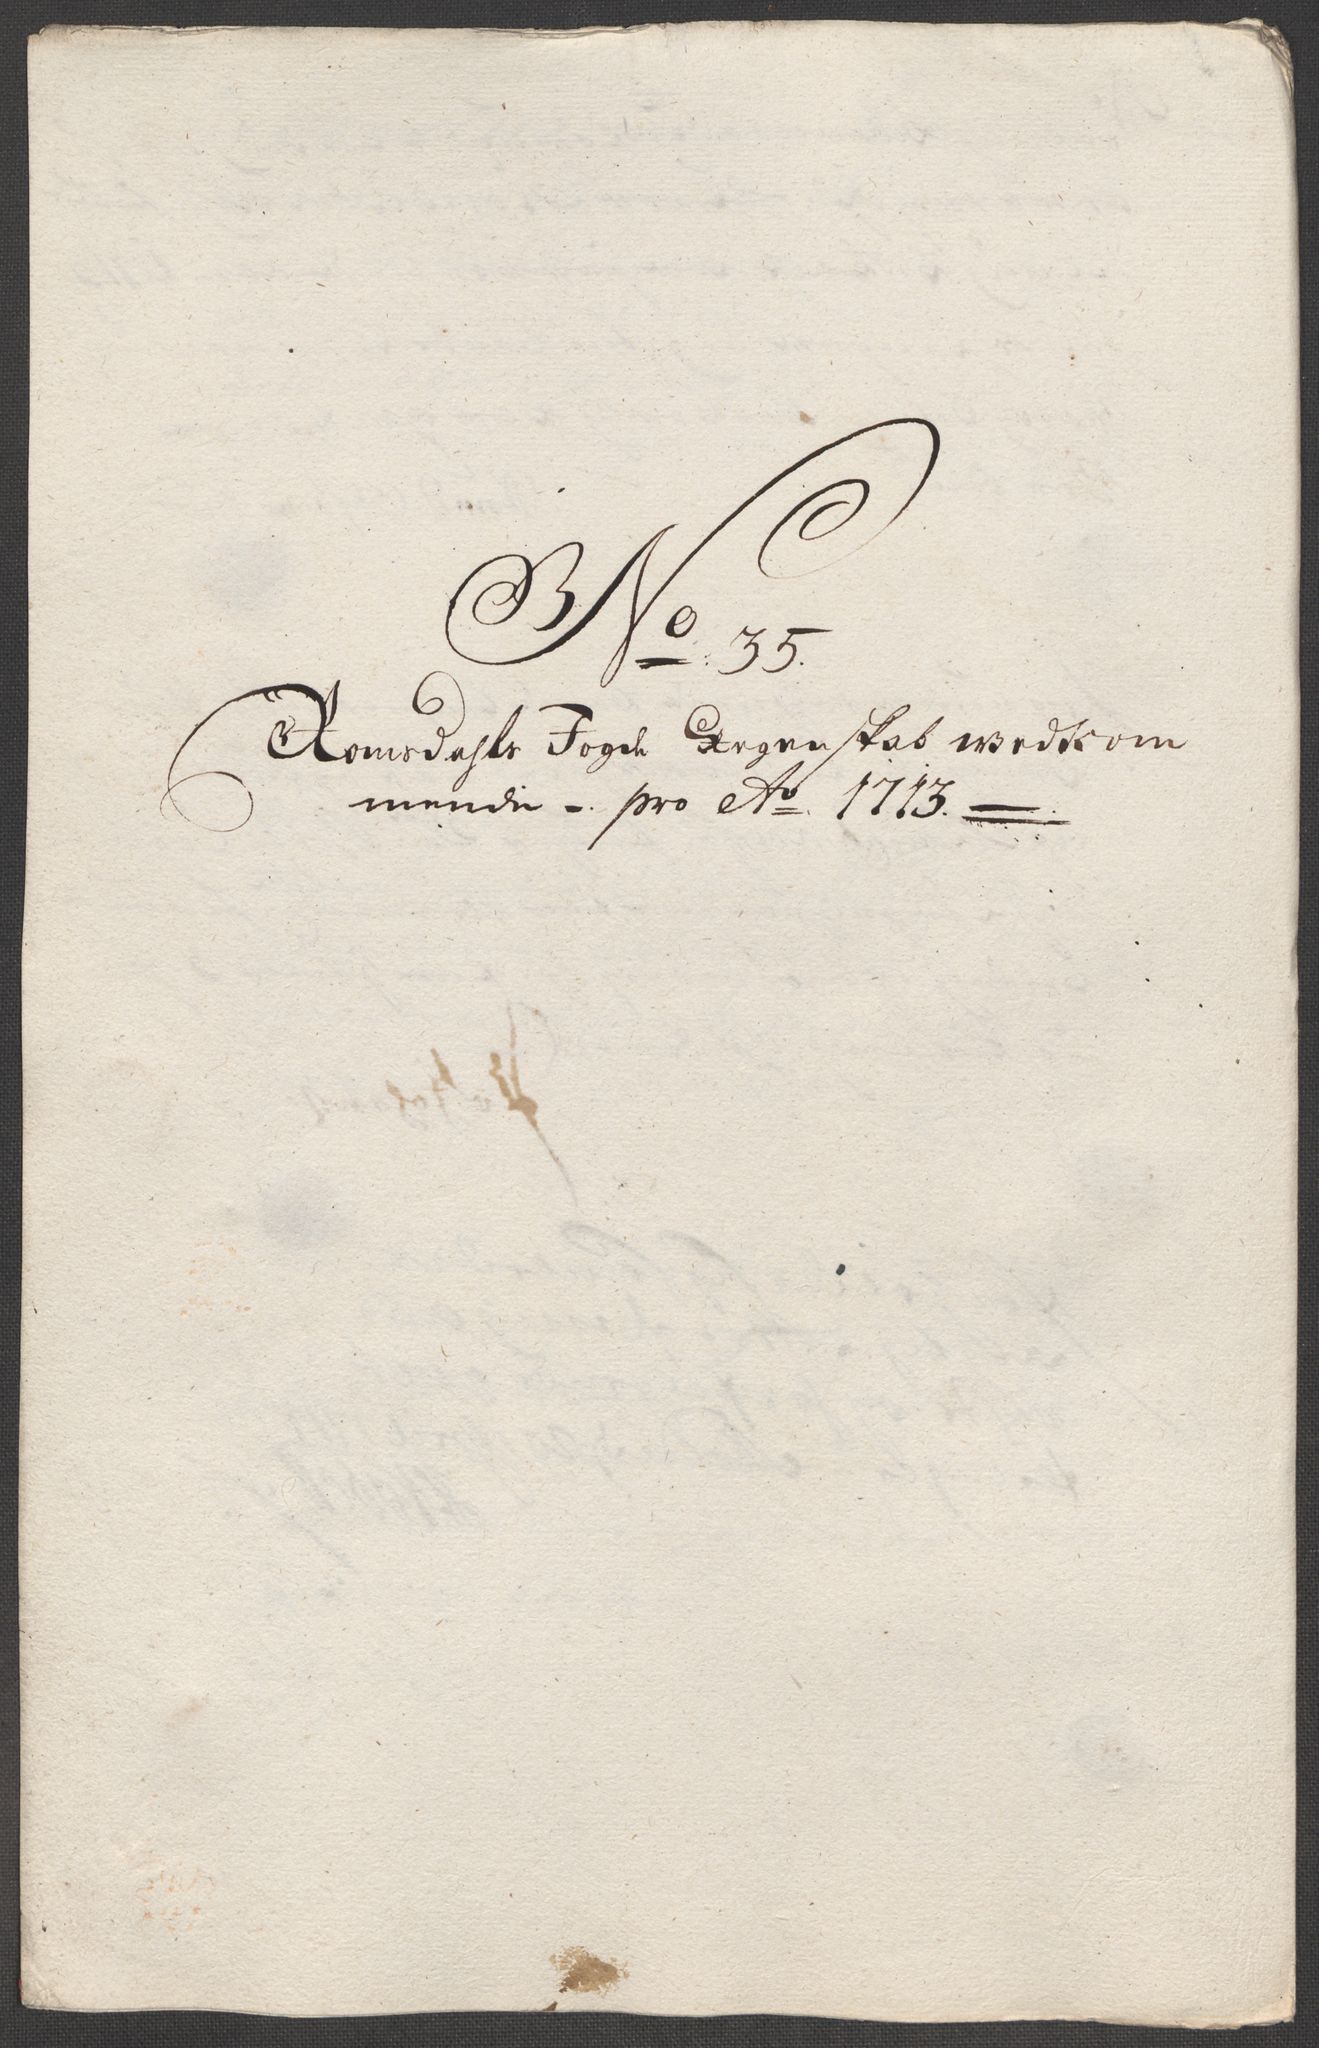 No. 35.
Romsdahls Fogde Regenskab wedkom
mende -. pro Ao. 1713.